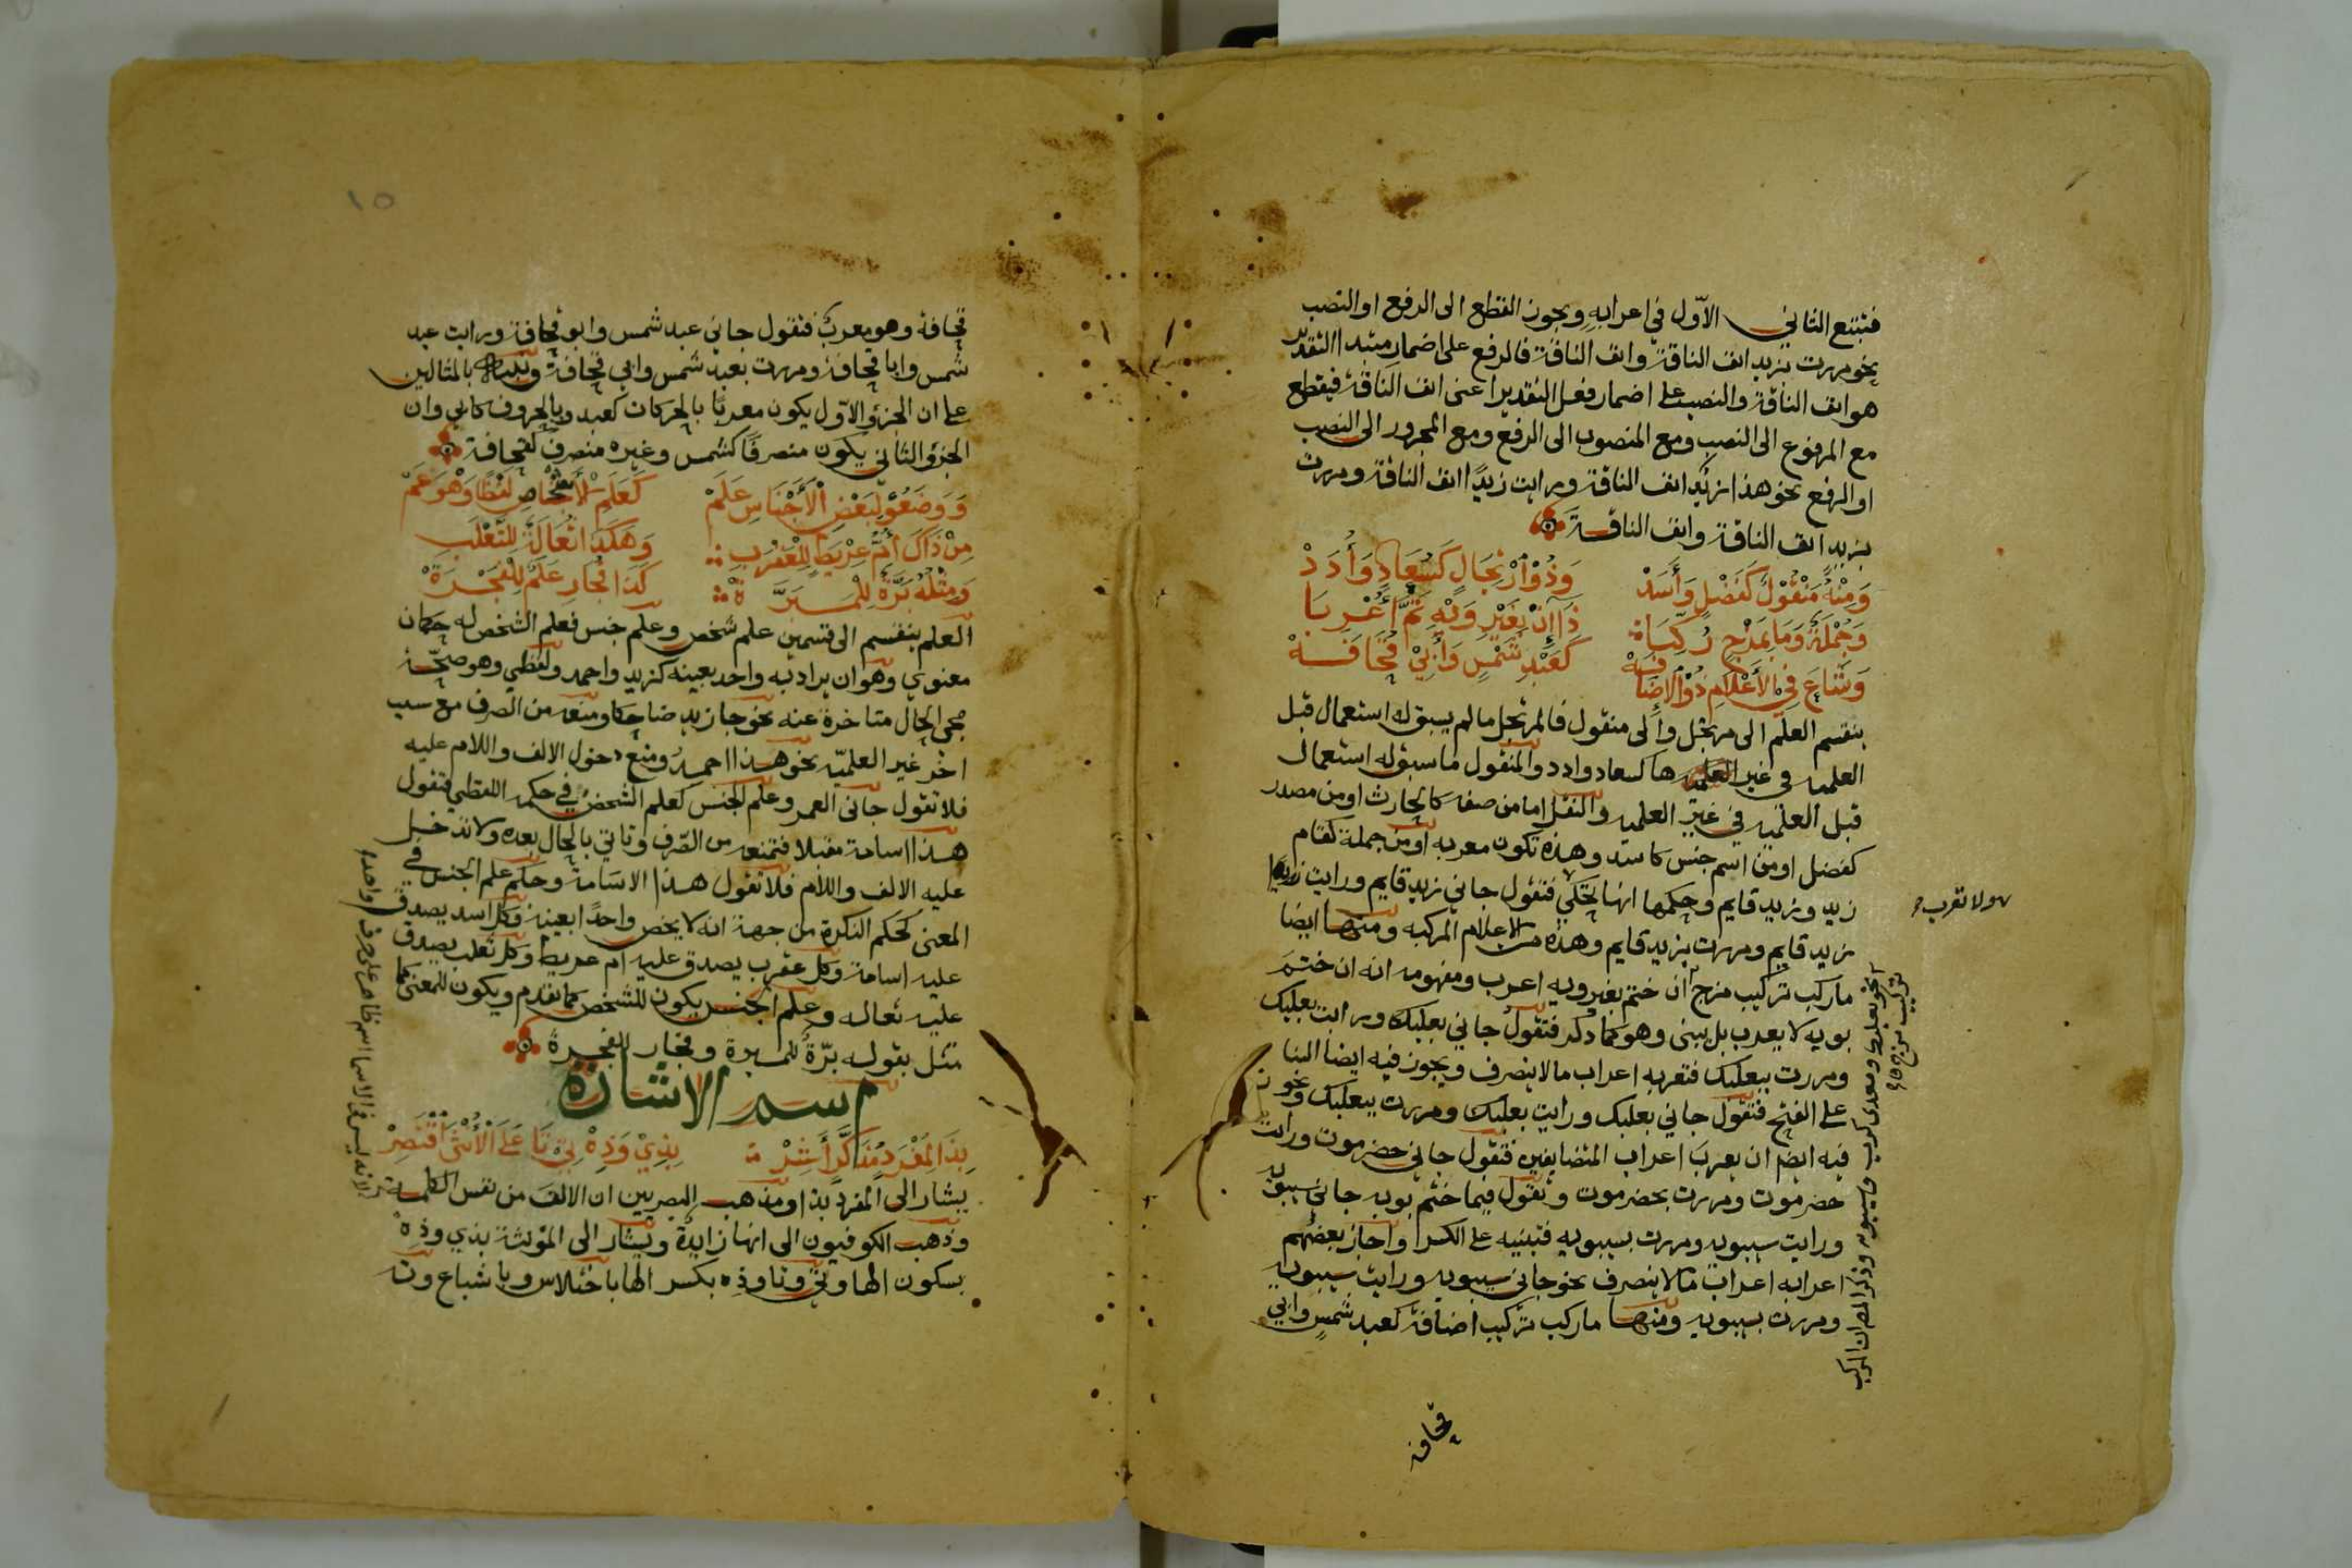 فيتبع الثاني الاول في اعرابه ويجوز القطع الى الرفع او النصب
نحو مررت بزيد انف الناقة وانف الناقة فالرفع على اضمار مبتدا التقدير
هو انف الناقة والنصب على اضمار فعل التقدير اعنى انف الناقة فيقطع
مع المرفوع الى النصب ومع المنصوب الى الرفع ومع المجرور الى النصب
او الرفع نحو هذا زيد انف الناقة ورايت زيدا انف الناقة ومررت
بزيد انف الناقة وانف الناقة
وَمِنْهُ مَنْقُولٌ كَفَضْلٍ وَأَسَدْ وَذُو ارْتِجَالٍ كَسُعَادٍ وَأُدَدْ
وَجُمْلَةٌ وَمَا بِمَزْجٍ رُكِّبَا ذَا إِنْ بِغَيْرِ وَيْهِ تَمَّ أُعْرِبَا
وَشَاعَ فِي الأَعْلامِ ذُو الإِضَافَهْ كَعَبْدِ شَمْسٍ وَأَبِيْ قُحَافَهْ
ينقسم العلم الى مرتجل والى منقول فالمرتجل ما لم يسبق له استعمال قبل
العلميه في غير العلميه ها كسعاد وادد والمنقول ما سبق له استعمال
قبل العلميه في غير العلميه والنقل اما من صفه كالحارث او من مصدر
كفضل او من اسم جنس كاسد وهذه تكون معربه او من جملة كقام
زيد وزيد قايم وحكمها انها تحكى فتقول جاني زيد قايم ورايت زيد
ولا تعرب
زيد قايم ومررت بزيد قايم وهذه من الاعلام المركبه ومنها ايضا
ما ركب تركيب مزج ان ختم بغير ويه اعرب ومفهومه انه ان ختم
بويه لا يعرب بل يبنى وهو كما ذكر فتقول جاني بعلبك ورايت بعلبك
ومررت ببعلبك فتعربه اعراب ما لا ينصرف ويجوز فيه ايضا البنا
على الفتح فتقول جاني بعلبك ورايت بعلبك ومررت ببعلبك ويجوز
فيه ايضا ان يعرب اعراب المتضايفين فتقول جاني حضرموت ورايت
حضرموت ومررت بحضرموت وتقول فيما ختم بويه جاني سيبويه
ورايت سيبويه ومررت بسيبويه فتبنيه على الكسر واجاز بعضهم
اعرابه اعراب ما لا ينصرف نحو جاني سيبويه ورايت سيبويه
ومررت بسيبويه ومنها ما ركب تركيب اضافة كعبد شمس وابي
كبعلبك ومعدي كرب وسيبويه وذكر المص ان المركب
تركيب مزج
قحافة
١٥
قحافة وهو معرب فتقول جاني عبد شمس وابو قحافة ورايت عبد
شمس وابا قحافة ومررت بعبد شمس وابي قحافة ونبه بالمثالين
على ان الجزؤ الاول يكون معربا بالحركات كعبد وبالحروف كابي وان
الجزؤ الثاني يكون منصرفا كشمس وغيره منصرف كقحافة
وَوَضَعُوْ لِبَعْضِ الأَجْنَاسِ عَلَمْ كَعَلَمِ الأَشْخَاصِ لَفْظًا وَهْوَ عَمّْ
مِنْ ذَاكَ أُمُّ عِرْيَطٍ لِلْعَقْرَبِ وَهكَذَا ثُعَالَةٌ لِلثَّعْلَبِ
وَمِثْلُهُ بَرَّةُ لِلْمَبَرَّة كَذَا فَجَارِ عَلَمٌ لِلْفَجْرَةْ
العلم ينقسم الى قسمين علم شخص وعلم جنس فعلم الشخص له حكمان
معنوي وهو ان يراد به واحد بعينه كزيد واحمد ولفظي وهو صحة
مجي الحال متاخرة عنه نحو جا زيد ضاحكا ومنعه من الصرف مع سبب
اخر غير العلميه نحو هذا احمد ومنع دخول الالف واللام عليه
فلا تقول جاني العمر وعلم الجنس كعلم الشخص في حكمه اللفظي فتقول
هذا اسامة مقبلا فتمنعه من الصرف وتاتي بالحال بعده ولا تدخل
عليه الالف واللام فلا تقول هذا الاسامة وحكم علم الجنس في
المعنى كحكم النكرة من جهة انه لا يخص واحدا بعينه فكل اسد يصدق
عليه اسامة وكل عقرب يصدق عليه ام عريط وكل ثعلب يصدق
عليه ثعاله وعلم الجنس يكون للشخص كما تقدم ويكون للمعنى كما
مثل بقوله برة للمبرة وفجار للفجرة
اسم الاشارة
بِذَا لِمُفْرَدٍ مُذَكَّرٍ أَشِرْ بِذِيْ وَذِهْ تِيْ تَا عَلَى الأُنْثَى اقْتَصِرْ
يشار الى المفرد بذا ومذهب البصريين ان الالف من نفس الكلمة
وذهب الكوفيون الى انها زايدة ويشار الى المؤنثة بذي وذه
بسكون الها وتي وتا وذه بكسر الها باختلاس وباشباع وته
لانه ليس في الاسما اسم ظاهر على حرف واحد